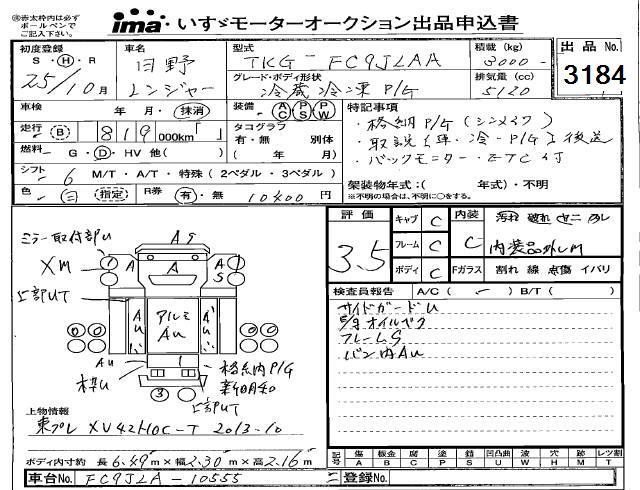 ※赤太枠内は必ずボールペンでご記入下さい
ima いすゞモーターオークション出品申込書
初度登録 S・H・R 25/10月
車名 日野 レンジャー
型式 TKG-FC9JLAA
グレード・ボディ形状 冷蔵冷凍 P/G
積載(kg) 3000
排気量(cc) 5120
出品No. 3184
車検 年・月・抹消
装備 AC PS PW
走行 B 819 000km「 」
タコグラフ 有・無 別体 ( 年/ 月)
燃料 G・D・HV 他( )
シフト 6 M/T・A/T・特殊(2ペダル・3ペダル)
色 指定 R券 有・無 10400円
特記事項
・格納P/G(シンメイワ)
・取説(車・冷・P/G)後送
・バックモニター・ETC付
架装物年式:( 年式)・不明
※不明の場合は、不明に○をする。
評価 3.5
キャブ C
フレーム C
ボディ C
内装 C
内装品外しM
Fガラス 割れ 線 点傷 イバリ
検査員報告 A/C( ) B/T( )
サイドガードU
フレームS
バン内AU
ミラー取付部U
AS
XM
A
A
AS
上部UT
AU
アルミ AU
AU
枠U
格納P/G
上部UT
3
上物情報
東プレ XV42HOC-T 2013-10
ボディ内寸約 長6.49m×幅2.30m×高2.16m
記号 傷A 板金B 腐C 塗P 錆S 凹凸曲U 波W 穴H 要M レツ割T
車台No. FC9JLA-10555
登録No.